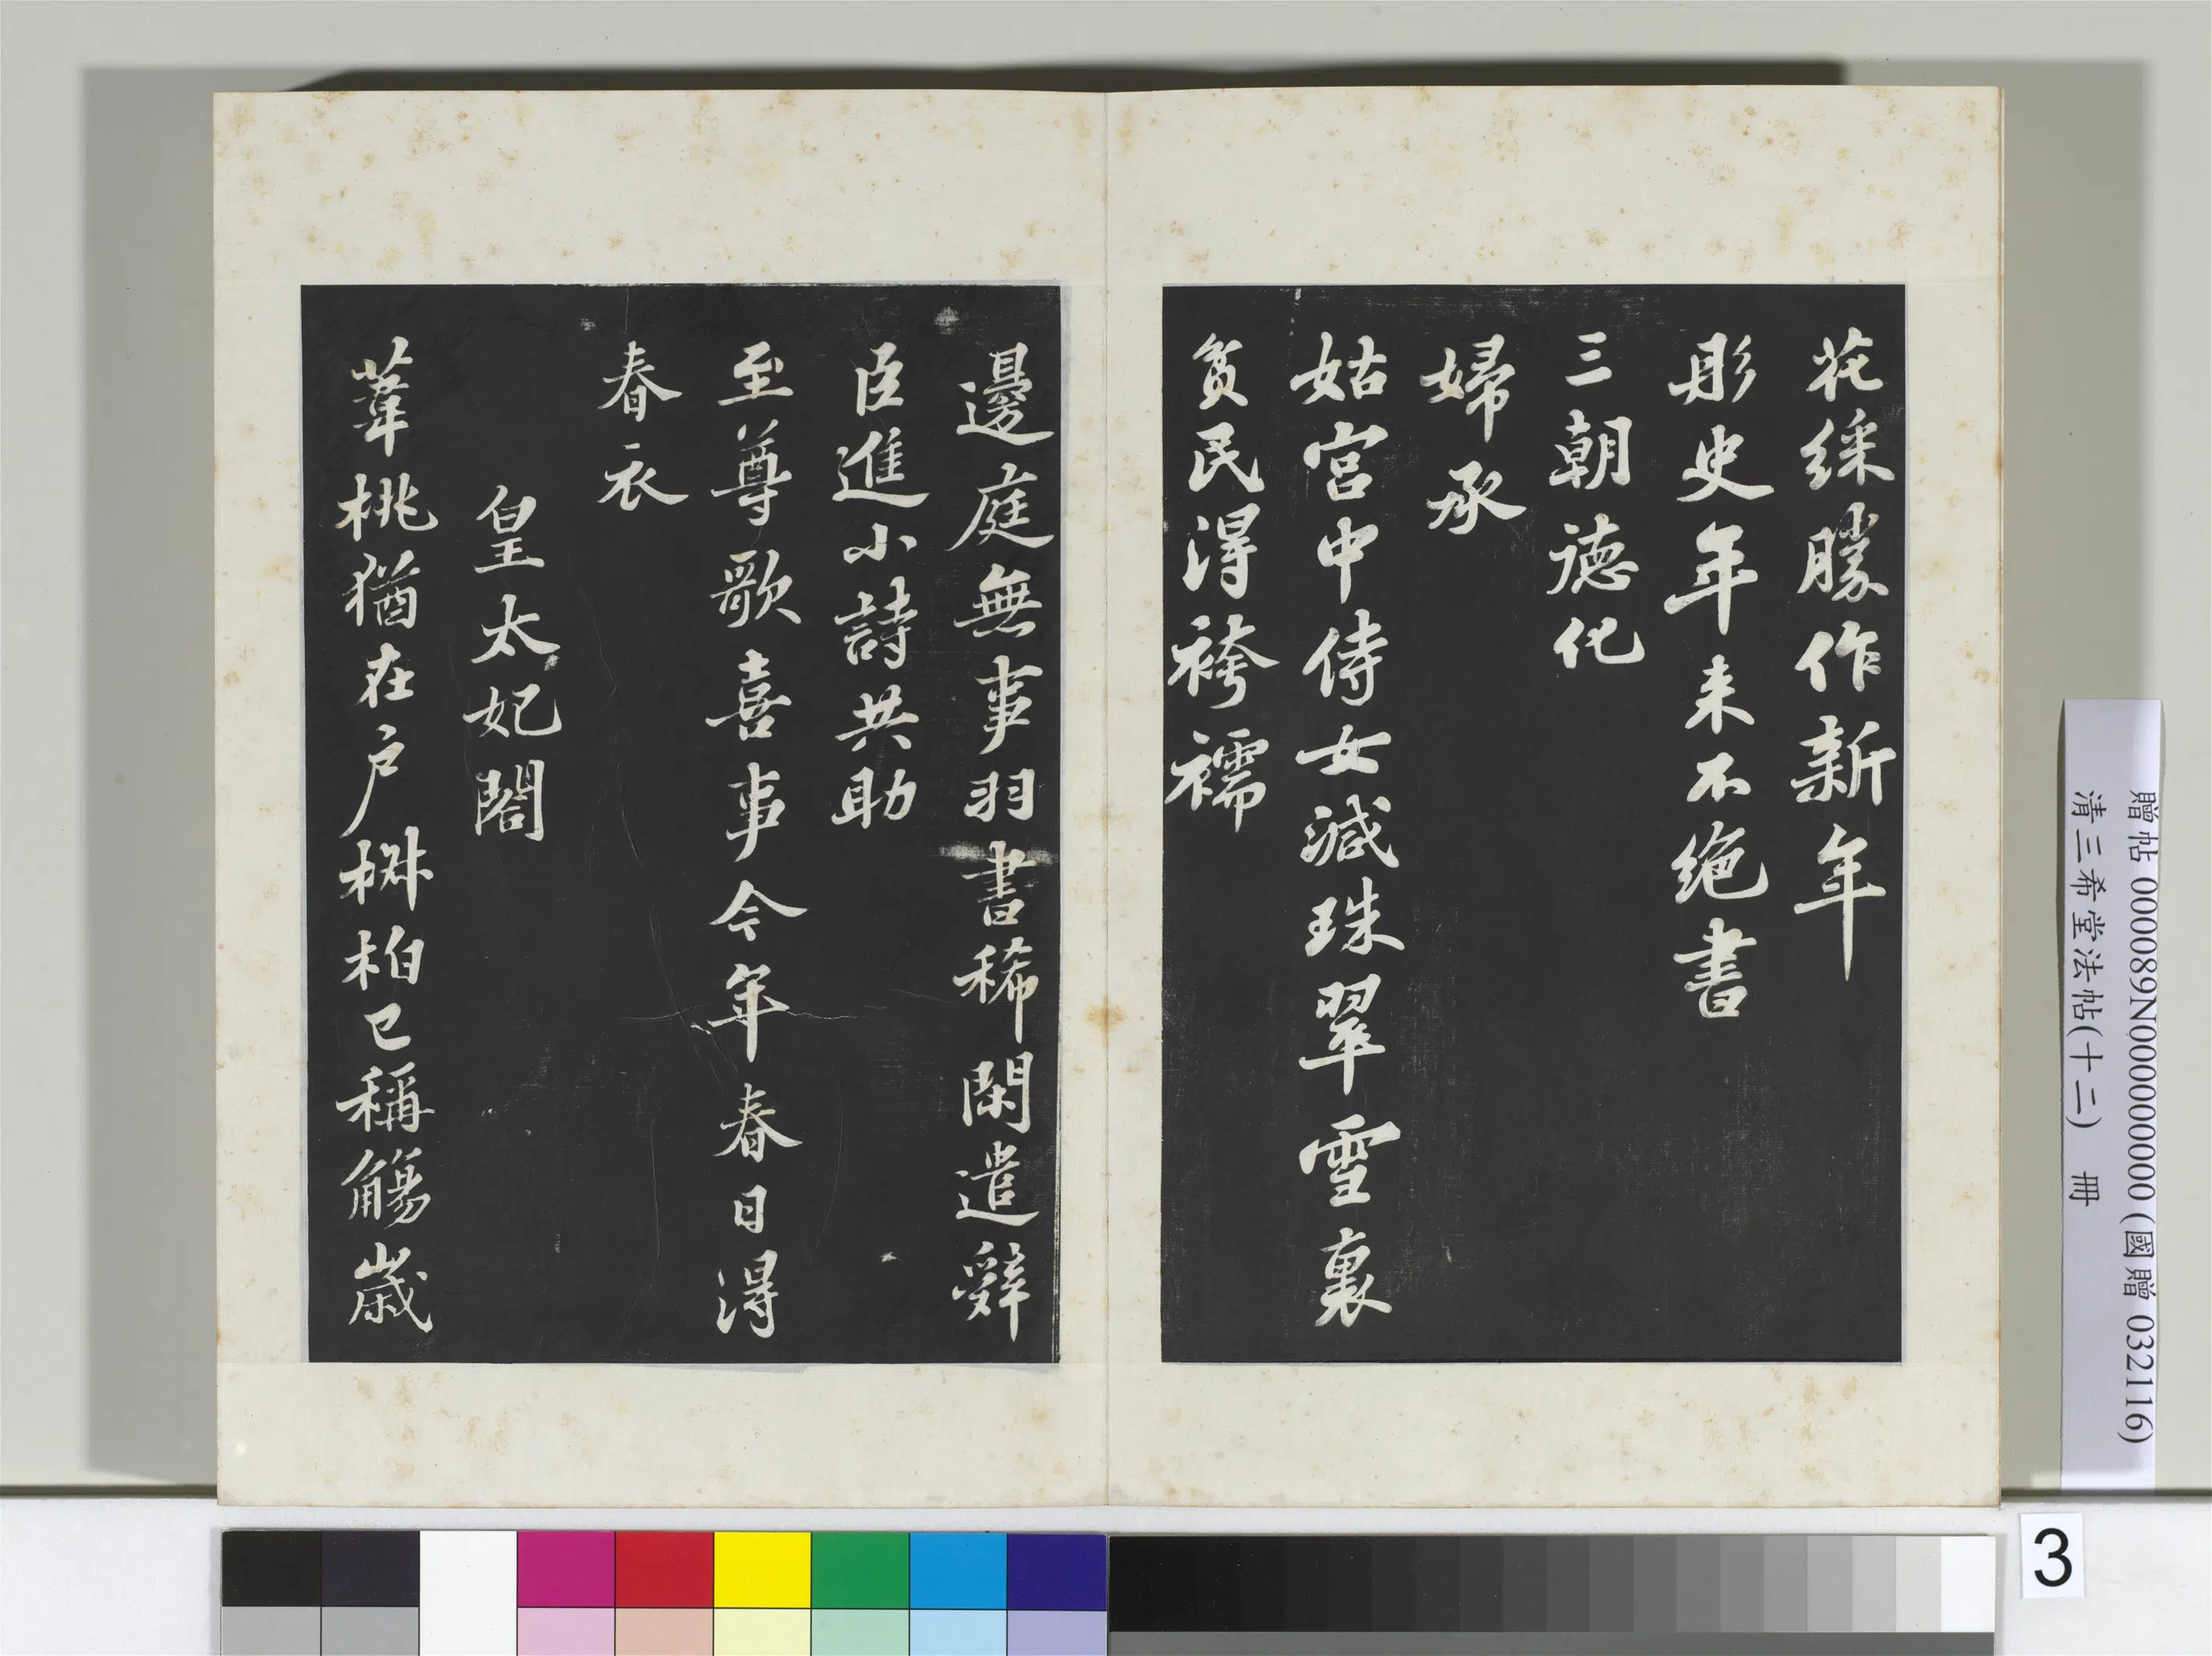 花綵勝作新年
彤史年来不絶書
三朝德化
婦承
姑宮中侍女減珠翠雪裏
貧民得袴襦
邊庭無事羽書稀閑遣辭
臣進小詩共助
至尊歌喜事今年春日得
春衣
皇太妃閤
葦桃猶在户椒柏已稱觴歲
贈帖 000089N000000000 (國贈 032116)
清三希堂法帖(十二) 冊
3